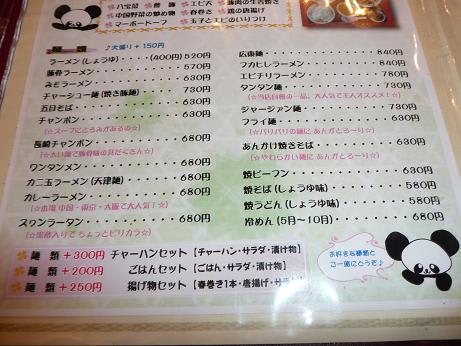 八宝菜
酢豚
エビ天
豚肉の生姜焼き
中国野菜の炒め物
春巻き
鶏の唐揚げ
マーボードーフ
玉子とエビのいりつけ
麺類
♪大盛り+150円
ラーメン(しょうゆ)・・・・(400円)520円
豚骨ラーメン・・・・・・・・・570円
みそラーメン・・・・・・・・・630円
チャーシュー麺(焼き豚麺)・・・730円
五目そば・・・・・・・・・・・630円
チャンポン・・・・・・・・・・630円
☆スープにとろみがあるの☆
長崎チャンポン・・・・・・・・680円
☆太い麺で豚骨味の具だくさん☆
ワンタンメン・・・・・・・・・680円
カニ玉ラーメン(天津麺)・・・・680円
カレーラーメン・・・・・・・・680円
☆本場中国・東京・大阪で大人気!☆
スワンラータン・・・・・・・・680円
☆黒酢入りでちょっとピリカラ☆
広東麺・・・・・・・・・・・・840円
フカヒレラーメン・・・・・・・840円
エビチリラーメン・・・・・・・780円
タンタン麺・・・・・・・・・・730円
☆当店自慢の一品、大人気で主人オススメ!☆
ジャージァン麺・・・・・・・・730円
フライ麺・・・・・・・・・・・630円
☆パリパリの麺に あんかとろ〜り☆
あんかけ焼きそば・・・・・・・630円
☆やわらかい麺に あんかとろ〜り☆
焼ビーフン・・・・・・・・・・630円
焼そば(しょうゆ味)・・・・・・580円
焼うどん(しょうゆ味)・・・・・580円
冷めん(5月〜10月)・・・・・・680円
麺類+300円 チャーハンセット【チャーハン・サラダ・漬け物】
麺類+200円 ごはんセット【ごはん・サラダ・漬け物】
麺類+250円 揚げ物セット【春巻き1本・唐揚げ・サ
お好きな麺類と
ご一緒にどうぞ♪